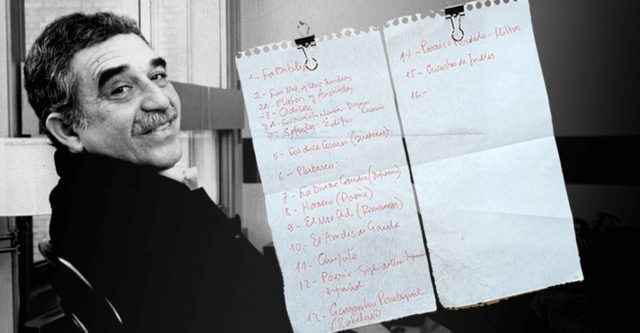 1- La Biblia
2- Las Mil y Una Noches
2A- Platón y Aristóteles
-3- Odisea
3A-
4- Sófocles Edipo
5- Los doce Césares (Suetonio)
6- Plutarco
7- La Divina Comedia (
8- Horacio (Poesía)
9- El Mio Cid (Romances)
10- El Amadís de Gaula
11- Quijote
12- Poesía - Siglo de Oro
español
13- Gargantúa Pantagruel
(Rabelais)
14- Paraíso Perdido - Milton
15- Cronistas de Indias
16-